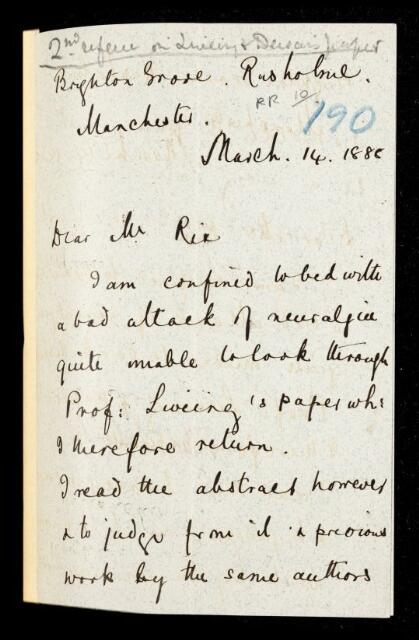 2nd referee on Liveing & Dewar's paper
Brighton Grove. Rusholme.
RR 10/190
Manchester.
March. 14. 1888
Dear Mr Rix
I am confined to bed with
a bad attack of neuralgia
quite unable to look through
Prof: Liveing's paper wh:
I therefore return.
I read the abstract however
& to judge from it & previous
work by the same authors